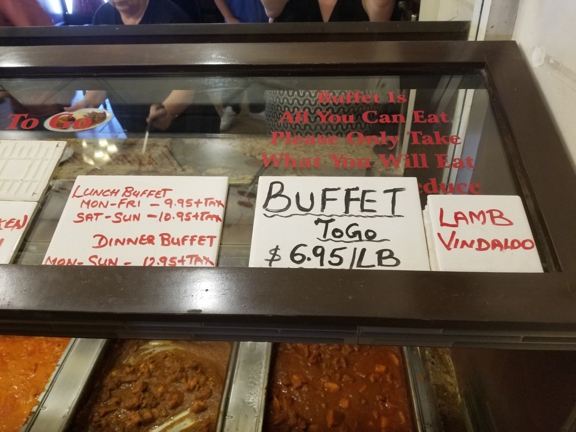 To Go
Buffet Is
All You Can Eat
Please Only Take
What You Will Eat
LUNCH BUFFET
MON-FRI - 9.95+TAX
SAT-SUN - 10.95+TAX
DINNER BUFFET
MON-SUN - 12.95+TAX
BUFFET
TOGO
$ 6.95/LB
LAMB
VINDALOO